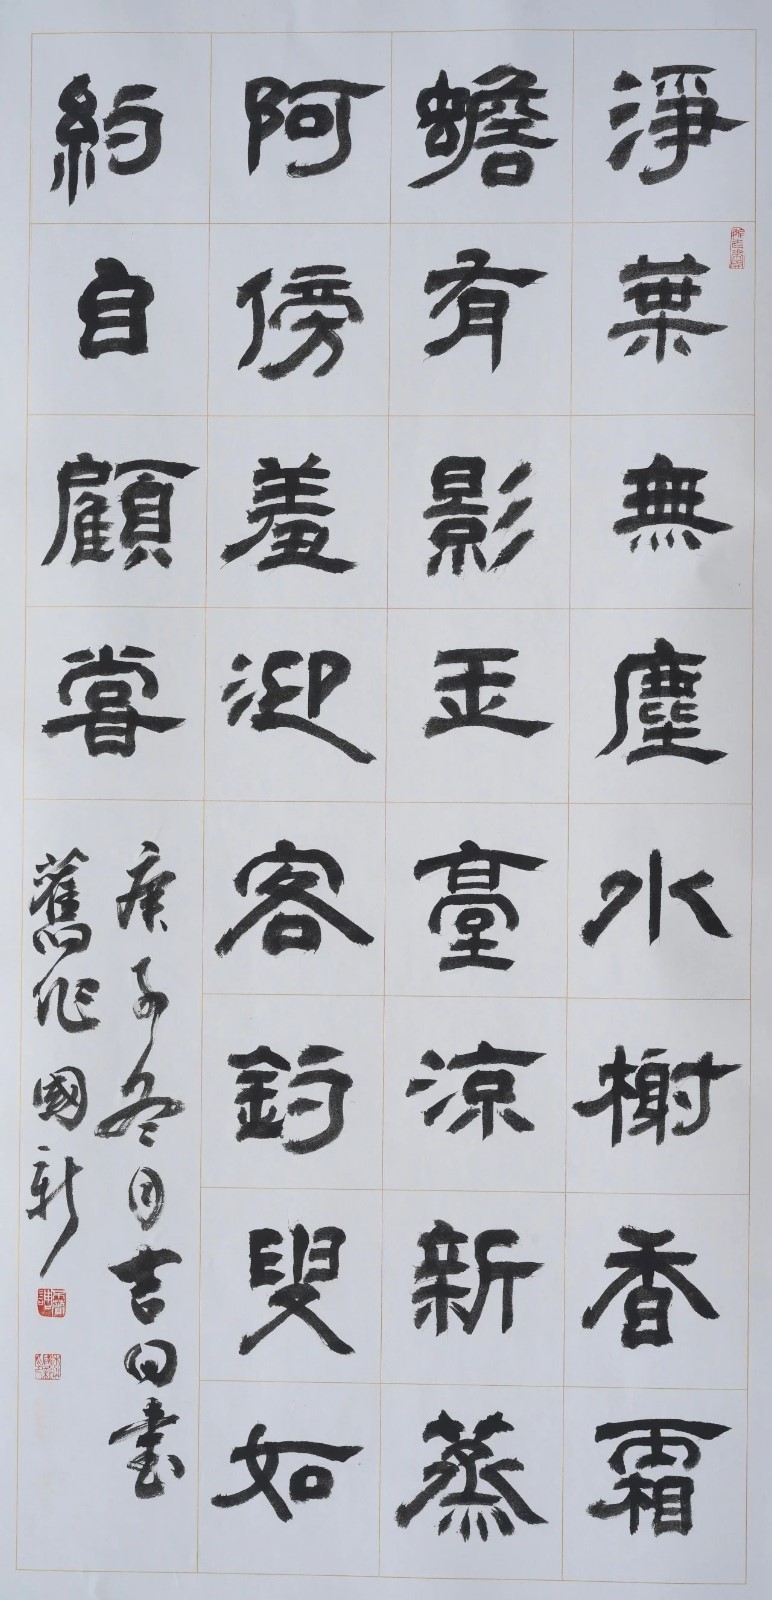 淨葉無塵水榭香霜
蟾有影玉臺涼新蒸
阿傍羞迎客釣叟如
約自顧嘗
庚子冬月吉日書
舊作國新